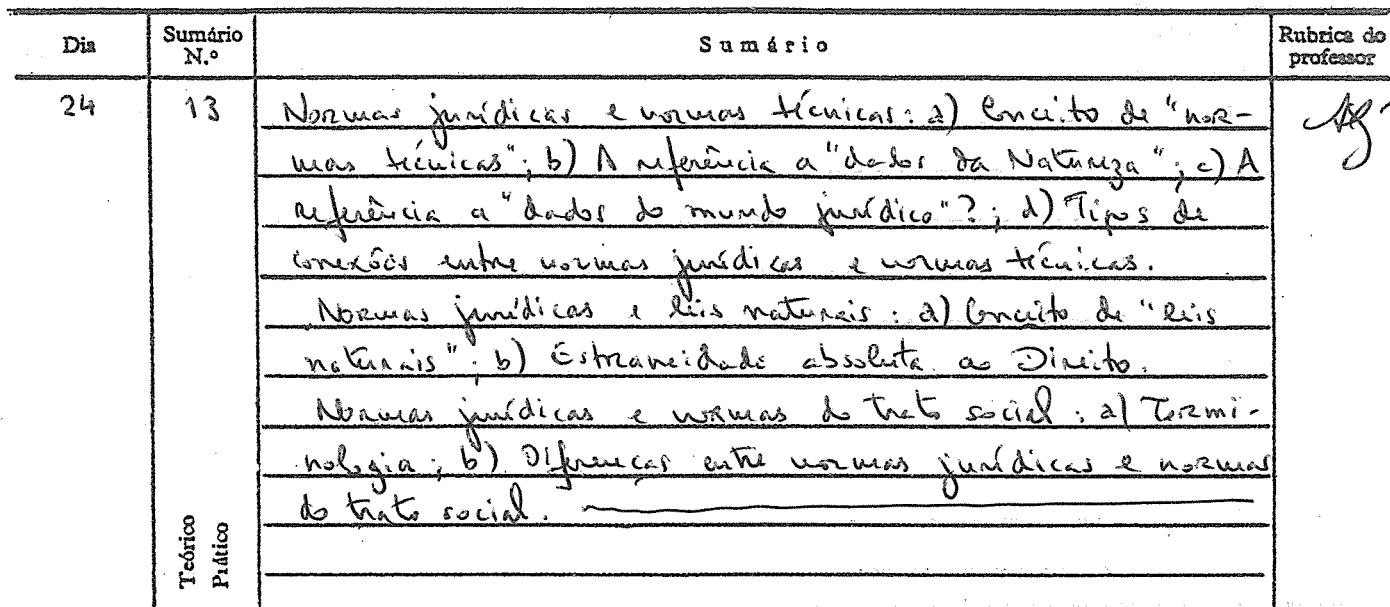 Dia Sumário N.º Sumário Rubrica do professor
24 13 Normas jurídicas e normas técnicas: a) Conceito de "nor-
mas técnicas"; b) A referência a "dados da Natureza"; c) A
referência a "dados do mundo jurídico"?; d) Tipos de
conexões entre normas jurídicas e normas técnicas.
Normas jurídicas e leis naturais: a) Conceito de "leis
naturais"; b) Estraneidade absoluta ao Direito.
Normas jurídicas e normas do trato social: a) Termi-
nologia; b) Diferenças entre normas jurídicas e normas
do trato social.
Teórico
Prático